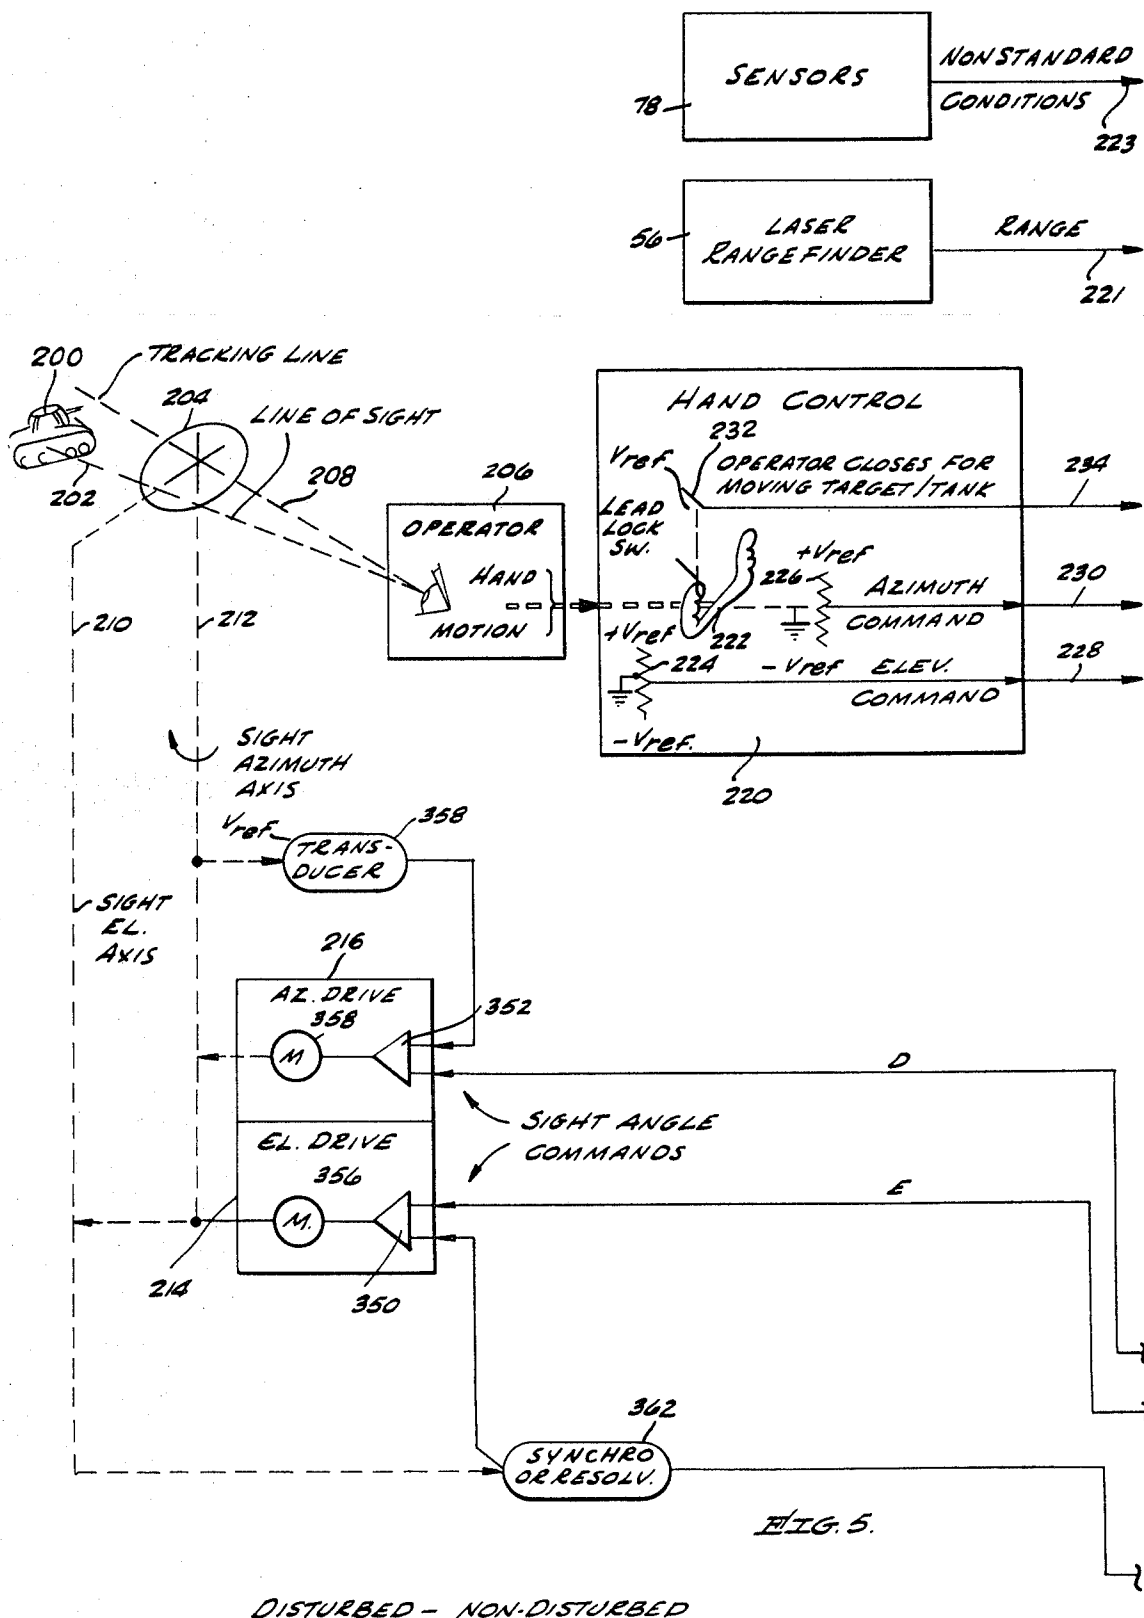 SENSORS
78
NONSTANDARD
CONDITIONS
223
LASER
RANGEFINDER
56
RANGE
221
200
TRACKING LINE
204
LINE OF SIGHT
202
208
206
OPERATOR
HAND
MOTION
HAND CONTROL
232
Vref
OPERATOR CLOSES FOR
MOVING TARGET/TANK
234
LEAD
LOCK
SW.
+Vref
226
AZIMUTH
COMMAND
230
222
+Vref
224
-Vref
ELEV.
COMMAND
228
-Vref.
220
210
212
SIGHT
AZIMUTH
AXIS
Vref.
358
TRANS-
DUCER
SIGHT
EL.
AXIS
216
AZ. DRIVE
358
352
M
D
SIGHT ANGLE
COMMANDS
EL. DRIVE
356
M.
E
214
350
362
SYNCHRO
OR RESOLV.
FIG. 5.
DISTURBED - NON-DISTURBED